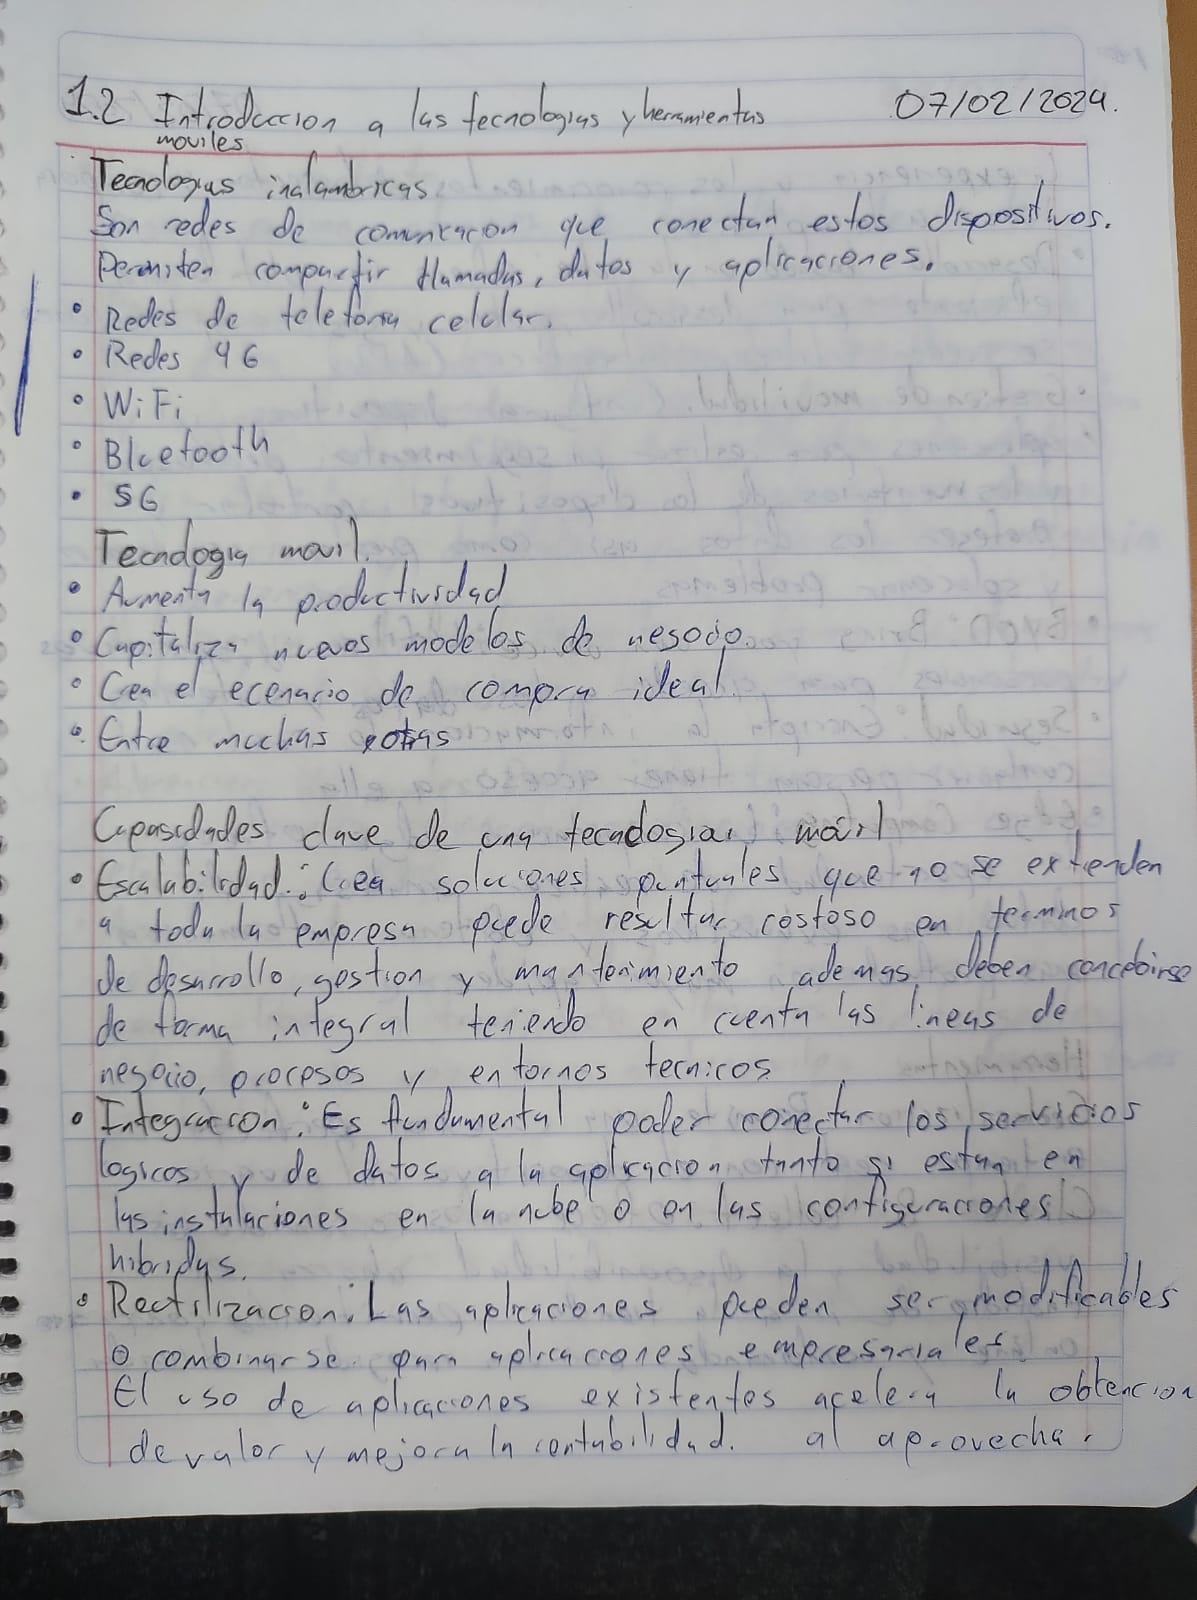 1.2 Introduccion a las tecnologias y herramientas
moviles
07/02/2024.
Tecnologias inalambricas
Son redes de comunicacion que conectan estos dispositivos.
Permiten compartir llamadas, datos y aplicaciones.
• Redes de telefonia celular.
• Redes 4G
• WiFi
• Bluetooth
• 5G
Tecnologia movil.
• Aumenta la productividad
• Capitaliza nuevos modelos de negocio.
• Crea el ecenario de compra ideal.
• Entre muchas otras
Capasidades clave de una tecnologia movil
• Escalabilidad: Crea soluciones puntuales que no se extienden
a toda la empresa puede resultar costoso en terminos
de desarrollo, gestion y mantenimiento ademas deben concebirse
de forma integral teniendo en cuenta las lineas de
negocio, procesos y entornos tecnicos
• Integracion: Es fundamental poder conectar los servicios
logicos y de datos a la aplicacion tanto si estan en
las instalaciones en la nube o en las configuraciones
hibridas.
• Reutilizacion: Las aplicaciones pueden ser modificables
o combinarse para aplicaciones empresariales
El uso de aplicaciones existentes acelera la obtencion
de valor y mejora la contabilidad. al aprovechar